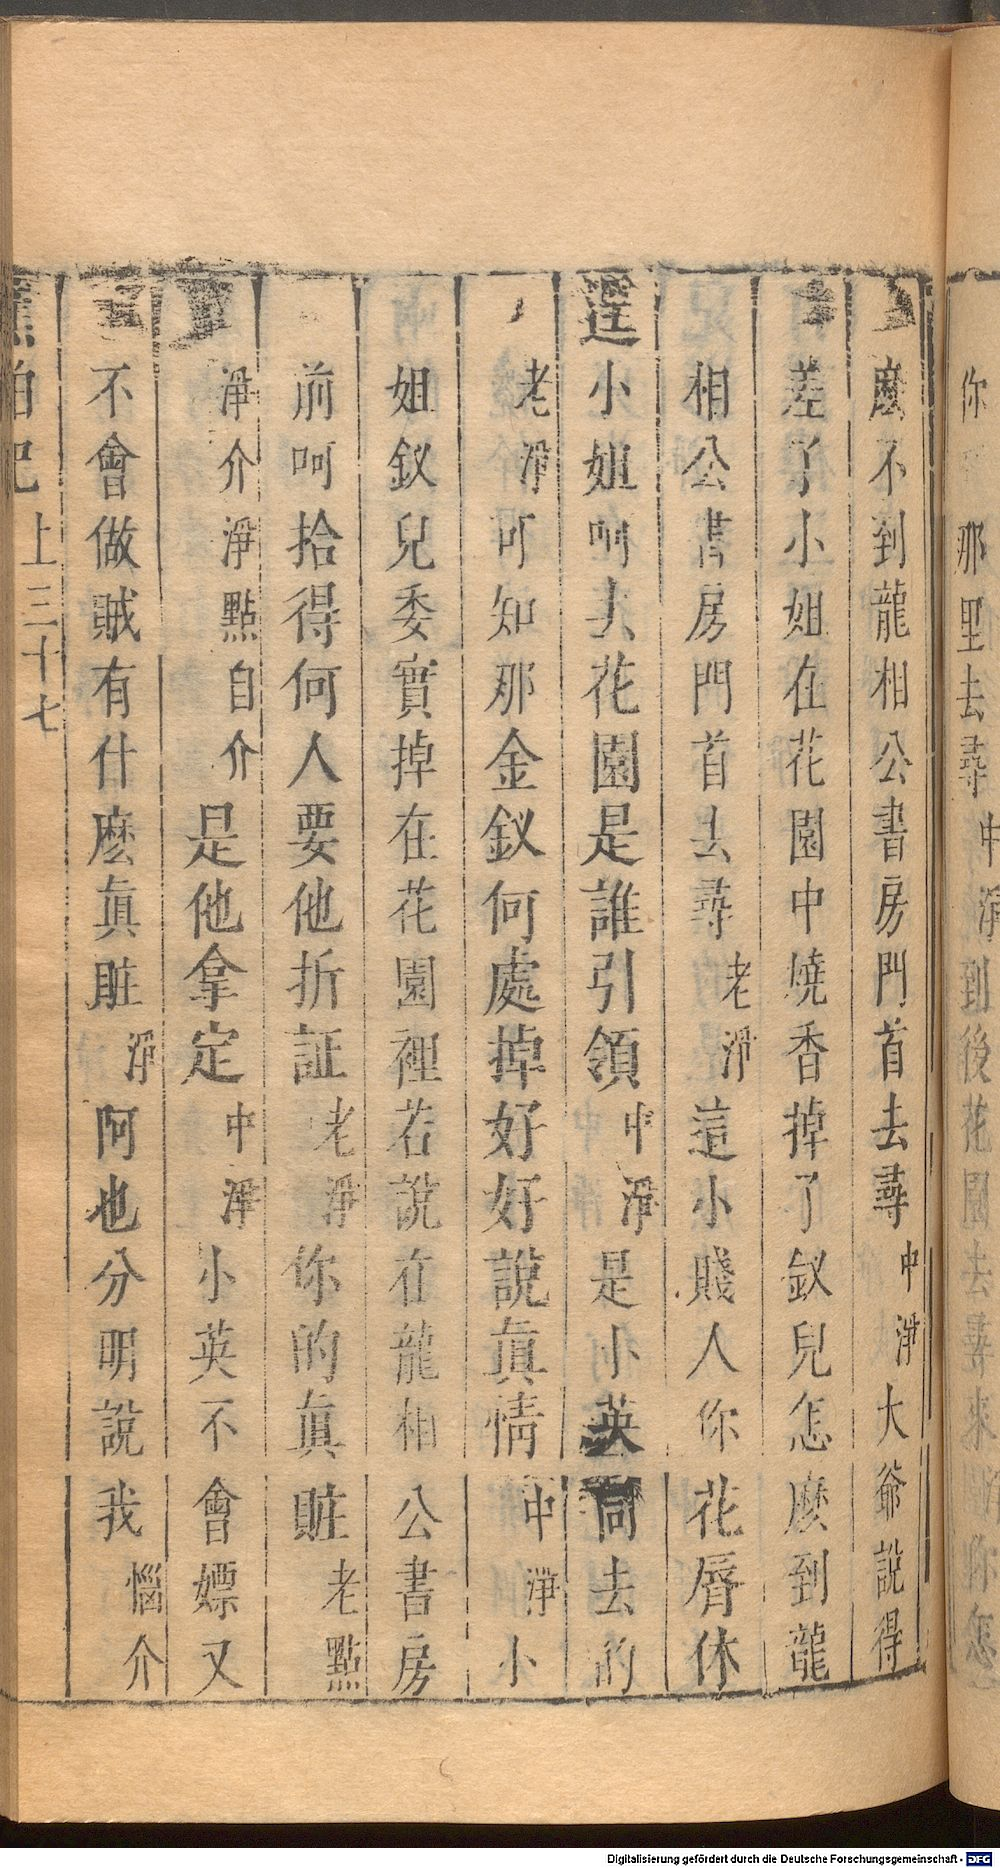 你 那里去尋中淨到後花園去尋來 你怎
麽不到龍相公書房門首去尋中淨大爺說得
差了小姐在花園中燒香掉了釵兒怎麽到龍
相公書房門首去尋老淨這小賤人你花唇休
逞小姐呵去花園是誰引領中淨是小英同去的
老淨可知那金釵何處掉好好說眞情中淨小
姐釵兒委實掉在花園裡若說在龍相公書房
前呵拾得何人要他折証老淨你的眞賍老點
淨介淨點自介是他拿定中淨小英不會嫖又
不會做賊有什麽眞賍淨阿也分明說我惱介
蕉帕記 上三十七
Digitalisierung gefördert durch die Deutsche Forschungsgemeinschaft - DFG